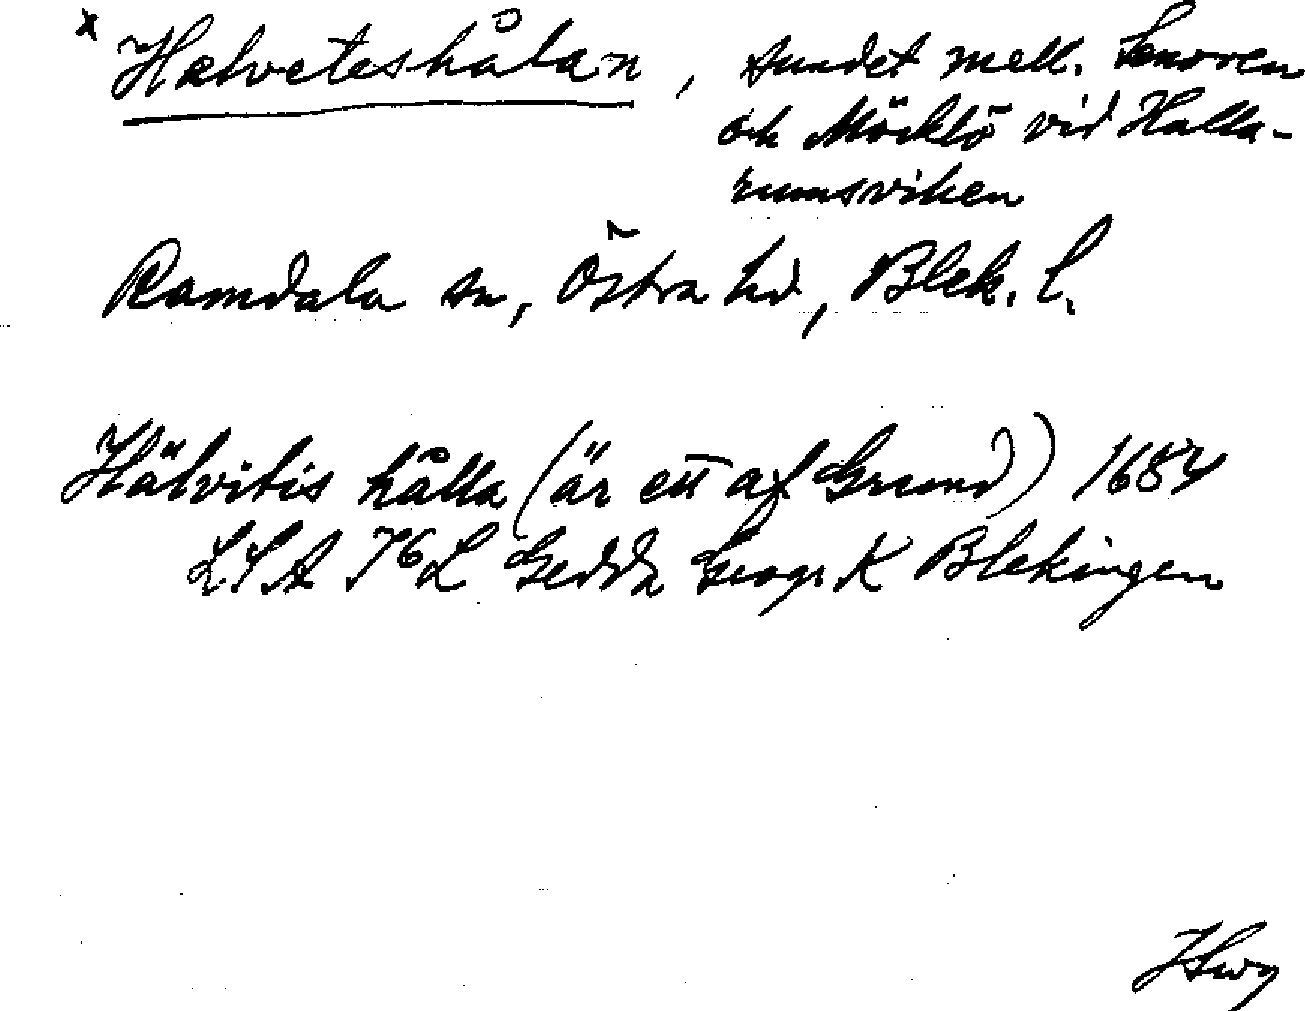 x Helveteshålan, sundet mell. Senoren
och Möcklö vid Halla-
rumsviken
Ramdala sn, Östra hd, Blek. l.
Hälvitis hålla (är ett af Grund) 1684
LSA K Gedda Geogr K Blekingen